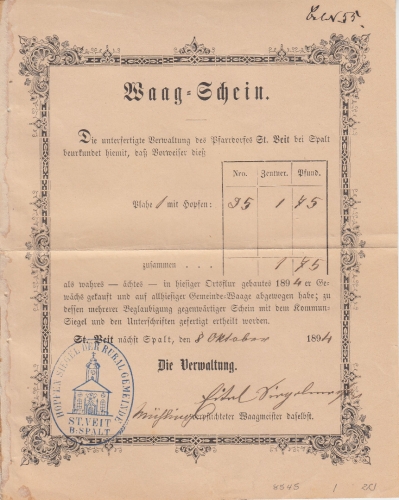 Waag-Schein.
Die unterfertigte Verwaltung des Pfarrdorfes St. Veit bei Spalt
beurkundet hiemit, daß Vorweiser dieß
Nro. Zentner. Pfund.
Plahe 1 mit Hopfen: 35 1 45
zusammen . . . 1 45
als wahres — ächtes — in hiesiger Ortsflur gebautes 1894er Ge-
wächs gekauft und auf allhiesiger Gemeinde-Waage abgewogen habe; zu
dessen mehrerer Beglaubigung gegenwärtiger Schein mit dem Kommun-
Siegel und den Unterschriften gefertigt ertheilt worden.
St. Veit nächst Spalt, den 8 Oktober 1894
Die Verwaltung.
verpflichteter Waagmeister daselbst.
HOPFEN SIEGEL DER RURAL GEMEINDE
ST. VEIT
B. SPALT